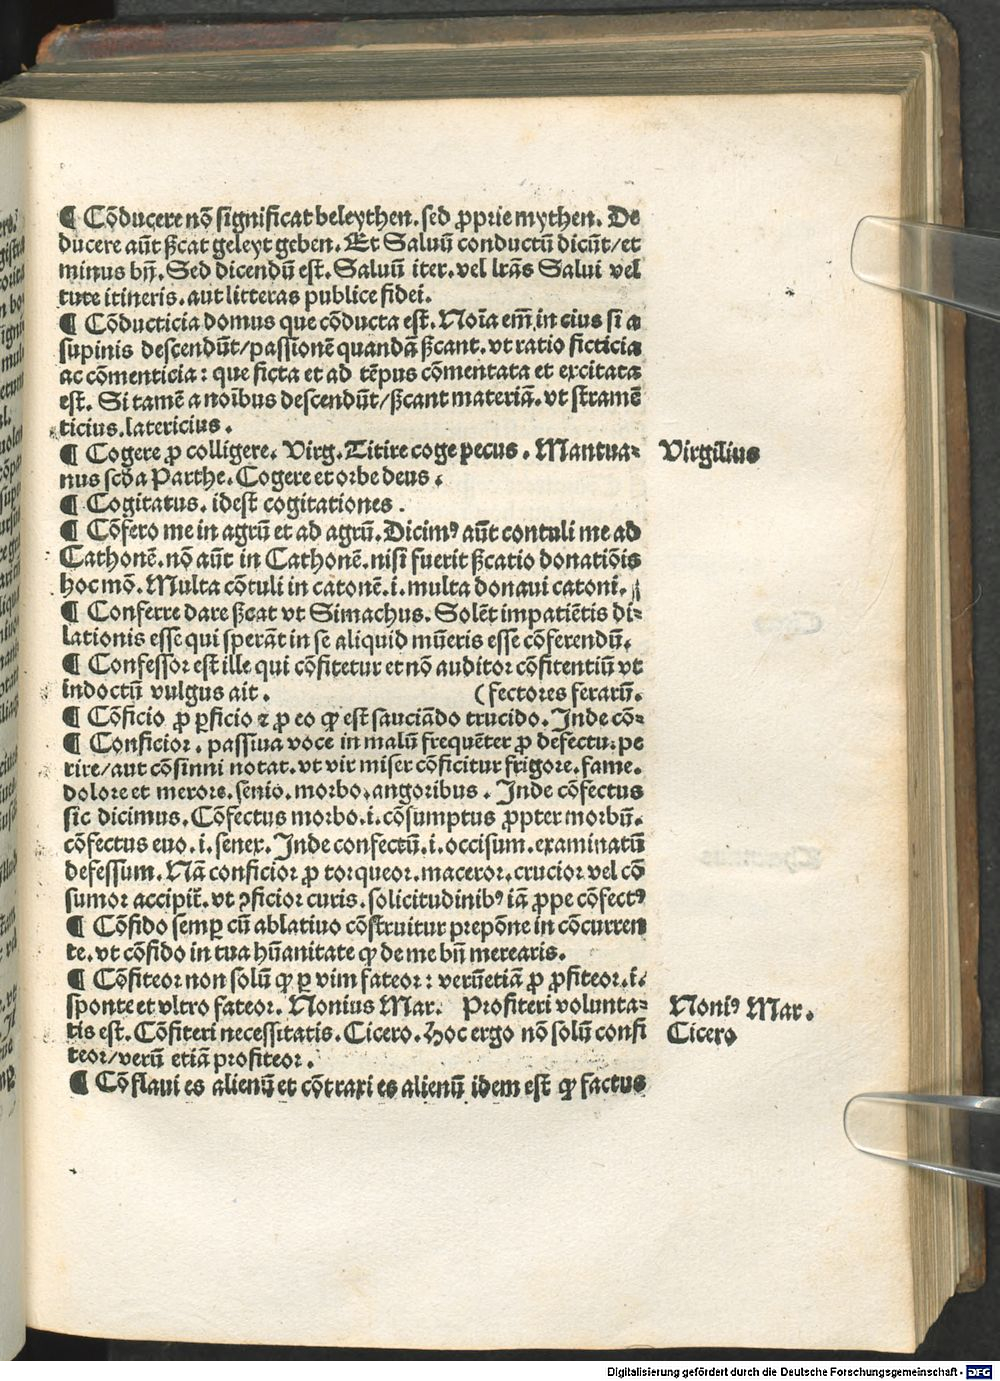 ¶ Cōducere nō significat beleythen. sed ꝓprie mythen. De
ducere aūt ſꝫcat geleyt geben. Et Saluū conductū dicūt/et
minus bn̄. Sed dicendū est. Saluū iter. vel lr̄as Salui vel
ture itineris. aut litteras publice fidei.
¶ Cōducticia domus que cōducta est. Noīa em̄ in cius si a
supinis descendūt/passionē quandā ſꝫcant. vt ratio ficticia
ac cōmenticia: que ficta et ad tēpus cōmentata et excitata
est. Si tamē a noībus descendūt/ſꝫcant materiā. vt stramē
ticius. latericius.
¶ Cogere ꝓ colligere. Virg. Titire coge pecus. Mantua⸗
Virgilius
nus scd̄a Parthe. Cogere et orbe deus.
¶ Cogitatus. idest cogitationes.
¶ Cōfero me in agrū et ad agrū. Dicimꝰ aūt contuli me ad
Cathonē. nō aūt in Cathonē. nisi fuerit ſꝫcatio donatiōis
hoc mō. Multa cōtuli in catonē. i. multa donaui catoni.
¶ Conferre dare ſꝫcat vt Simachus. Solēt impatiētis di⸗
lationis esse qui sperāt in se aliquid mūeris esse cōferendū.
¶ Confessor est ille qui cōfitetur et nō auditor cōfitentiū vt
indoctū vulgus ait. (fectores ferarū.
¶ Cōficio ꝓ ꝑficio ⁊ ꝓ eo ꝙ est sauciādo trucido. Inde cō⸗
¶ Conficior. passiua voce in malū frequēter ꝓ defectu. pe
rire/aut cōsinni notat. vt vir miser cōficitur frigore. fame.
dolore et merore. senio. morbo. angoribus. Inde cōfectus
sic dicimus. Cōfectus morbo. i. cōsumptus ꝓpter morbū.
cōfectus euo. i. senex. Inde confectū. i. occisum. examinatū
defessum. Nā conficior ꝓ torqueor. maceror. crucior vel cō
sumor accipit̄. vt ꝯficior curis. solicitudinibꝰ iā ꝓpe cōfectꝰ
¶ Cōfido semꝑ cū ablatiuo cōstruitur prepōne in cōcurren
te. vt cōfido in tua hūanitate ꝙ de me bn̄ merearis.
¶ Cōfiteor non solū ꝙ ꝑ vim fateor: verūetiā ꝓ ꝓfiteor. i.
sponte et vltro fateor. Nonius Mar. Profiteri volunta⸗
Noniꝰ Mar.
tis est. Cōfiteri necessitatis. Cicero. Hoc ergo nō solū confi
Cicero
teor/verū etiā profiteor.
¶ Cōflaui es alienū et cōtraxi es alienū idem est ꝙ factus
Digitalisierung gefördert durch die Deutsche Forschungsgemeinschaft - DFG